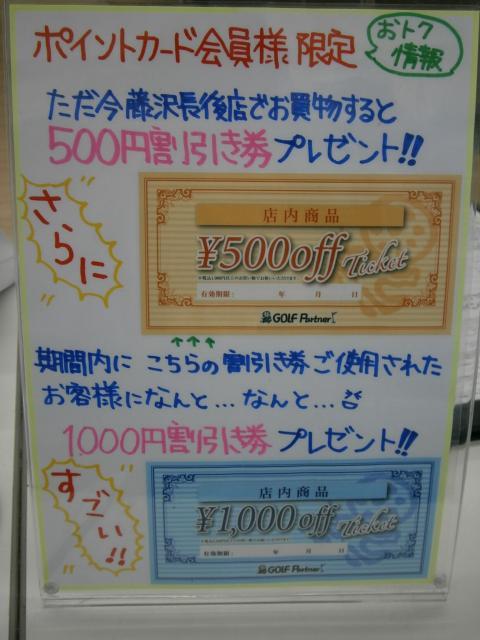 ポイントカード会員様 限定
おトク
情報
ただ今藤沢長後店でお買物すると
500円割引き券プレゼント!!
さらに
店内商品
¥500off Ticket
有効期限: 年 月 日
GOLF Partner
↑↑↑
期間内に こちらの割引き券ご使用された
お客様になんと...なんと...
1000円割引き券プレゼント!!
すごい!!
店内商品
¥1,000off Ticket
有効期限: 年 月 日
GOLF Partner